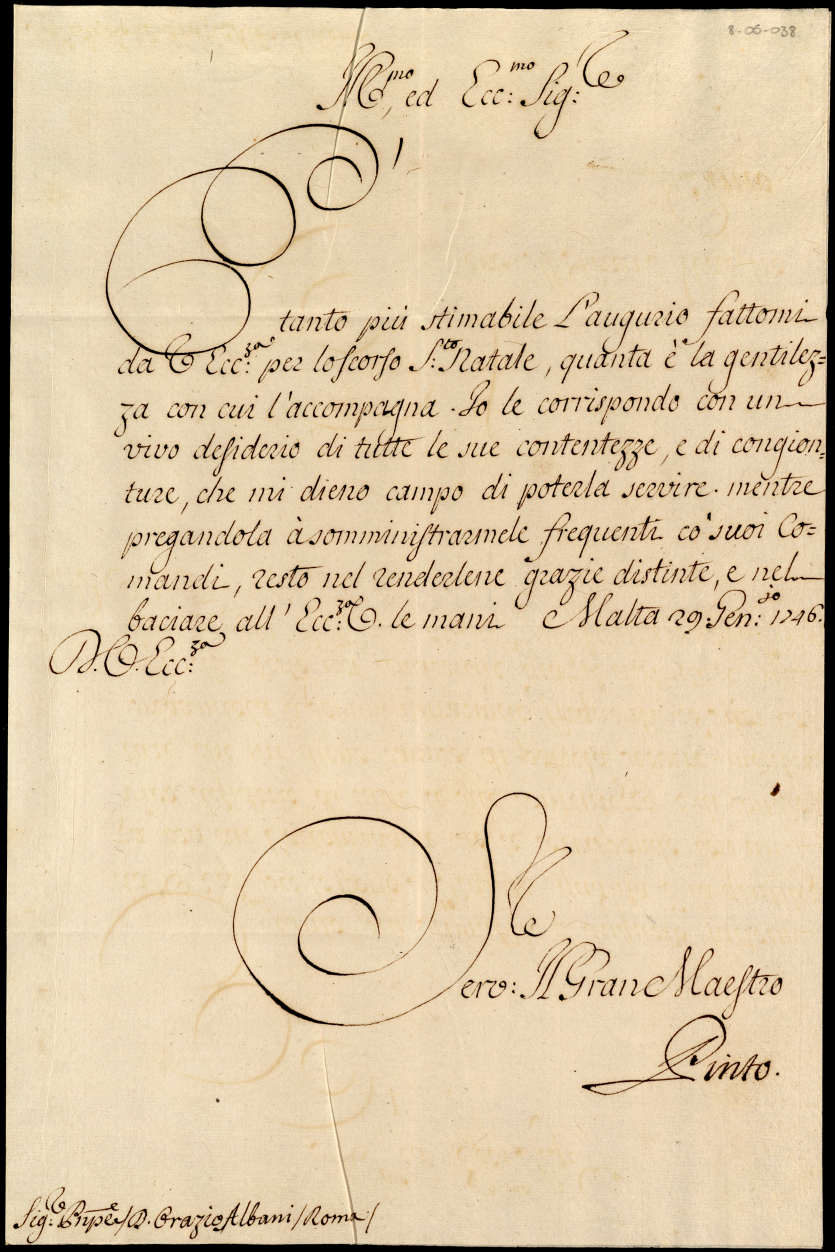 8-05-038
Ill.mo, ed Ecc:mo Sig:re
E' tanto più stimabile l'augurio fattomi
da V Ecc:za per lo scorso S:to Natale, quanta è la gentilez=
za con cui l'accompagna. Io le corrispondo con un
vivo desiderio di tutte le sue contentezze, e di congion=
ture, che mi dieno campo di poterla servire. mentre
pregandola à somministrarmele frequenti co' suoi Co=
mandi, resto nel renderlene grazie distinte, e nel
baciare all' Ecc:za V. le mani Malta 29: Gen:jo 1746.
D. V. Ecc:za
Serv:re Il Gran Maestro
Pinto.
Sig:re Pnpe / D. Orazio Albani / Roma /